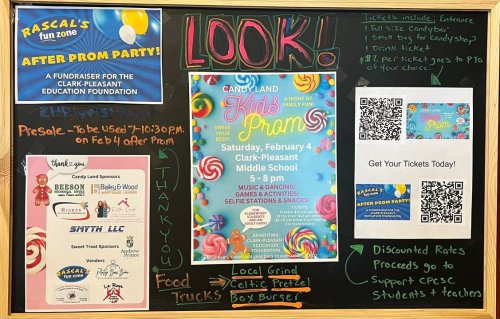 RASCAL'S
fun zone
AFTER PROM PARTY!
A FUNDRAISER FOR THE
CLARK-PLEASANT
EDUCATION FOUNDATION
PreSale - To be Used 7-10:30 P.M.
on Feb 4 after Prom
LOOK!
Tickets include: Entrance
1 Full Size Candybar
1 Small bag for Candy shop
1 Drink ticket
$2 per ticket goes to PTO
of your choice!
thank you
Candy Land Sponsors
BEESON
Bailey & Wood
SMYTH LLC
Sweet Treat Sponsors
Andrew
Prince
Vendors
RASCAL'S
fun zone
THANK YOU
CANDY LAND
A NIGHT OF
FAMILY FUN!
Kids
Prom
DRESS YOUR
BEST!
Saturday, February 4
Clark-Pleasant
Middle School
5 - 8 pm
MUSIC & DANCING
GAMES & ACTIVITIES!
SELFIE STATIONS & SNACKS!
FOR
ELEMENTARY
STUDENTS
AND AN
ADULT GUEST
BENEFITING
CLARK-PLEASANT
EDUCATION
FOUNDATION
Get Your Tickets Today!
RASCAL'S
fun zone
AFTER PROM PARTY!
Discounted Rates
Proceeds go to
Support CPCSC
Students + teachers
Food
Trucks
Local Grind
Celtic Pretzel
Box Burger